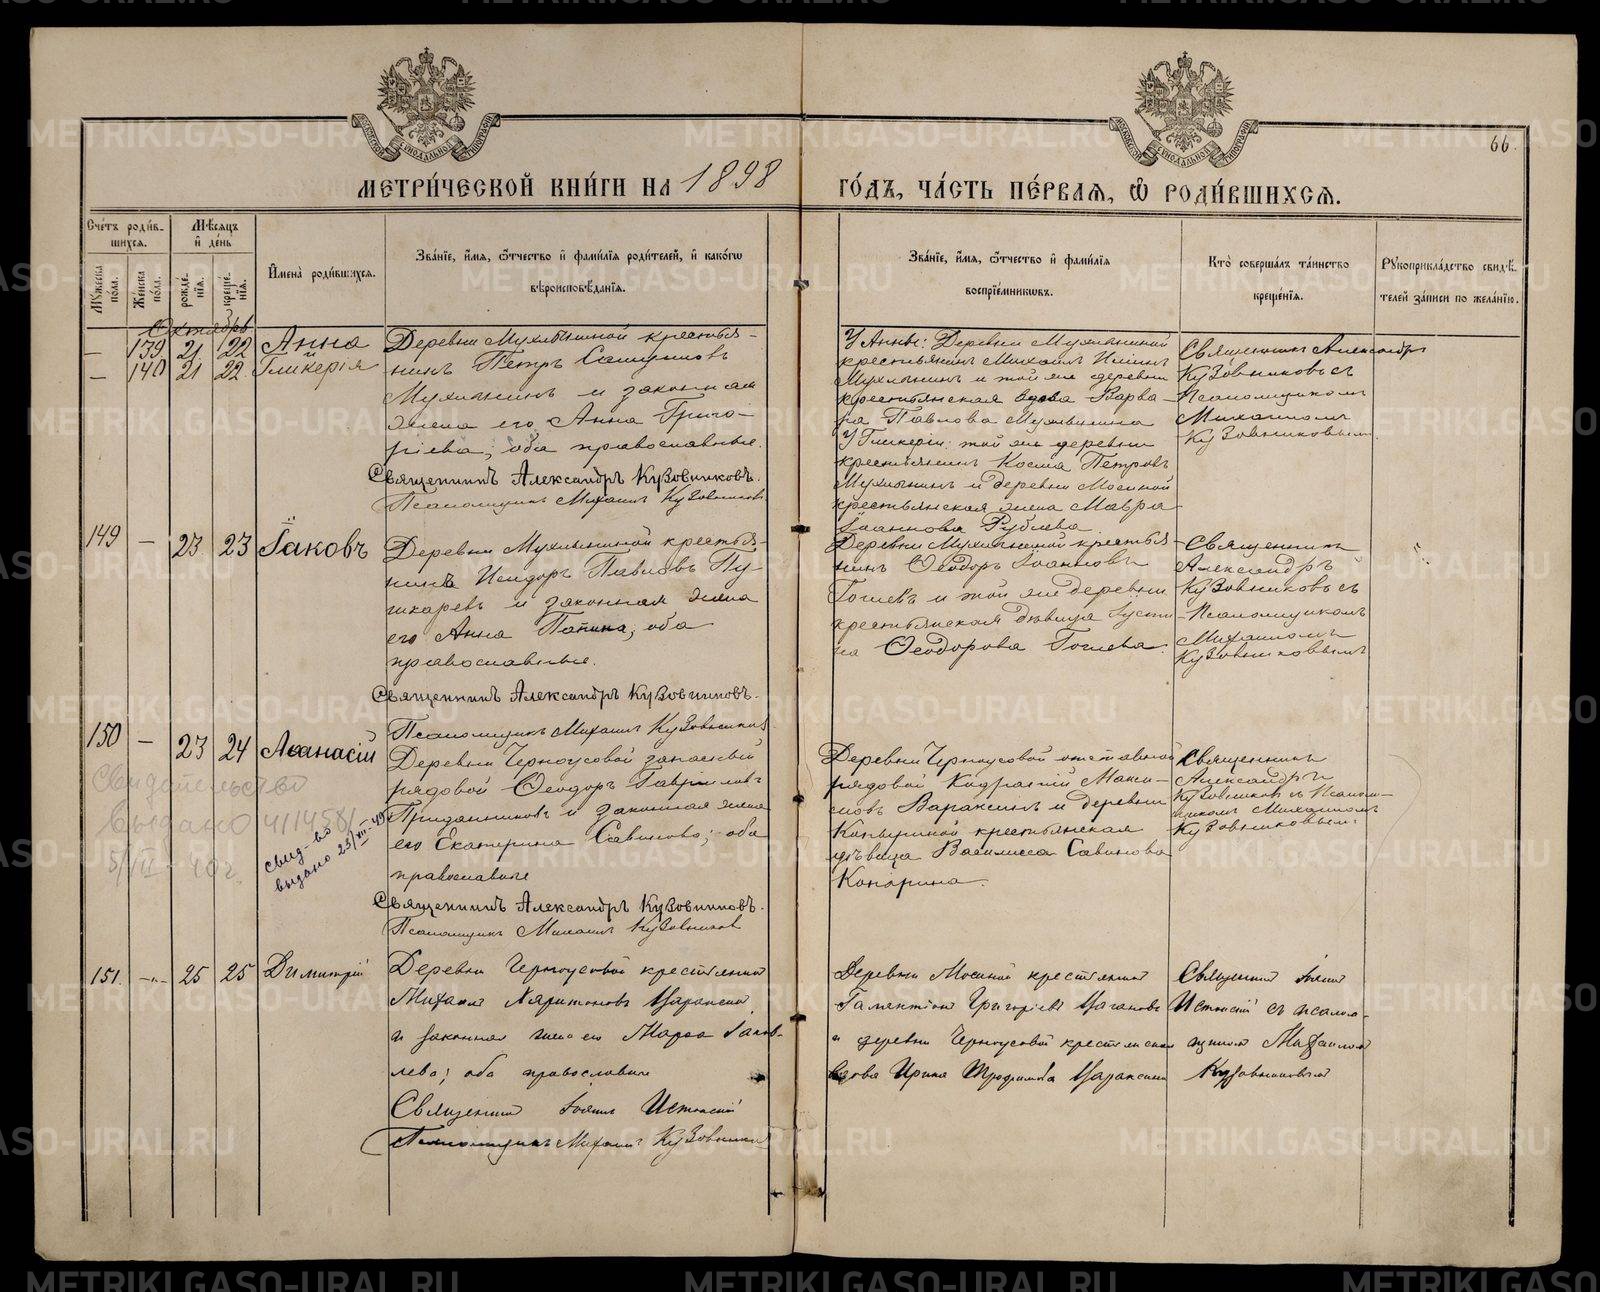 66.
МЕТРИ́ЧЕСКОЙ КНИ́ГИ НА 1898 ГО́ДЪ, ЧА́СТЬ ПЕ́РВАЯ, Ѡ РОДИ́ВШИХСЯ.
Сче́тъ роди́в-
шихся.
Мѣ́сяцъ
и҆ де́нь
Мꙋ́жеска
по́ла.
Же́нска
по́ла.
рожде́-
нїя.
креще́-
нїя.
И҆мена̀ роди́вшихся.
Зва́нїе, и҆́мѧ, ѻ҆́тчество и҆ фами́лїя роди́телей, и҆ како́гѡ
вѣроисповѣ́данїя.
Зва́нїе, и҆́мѧ, ѻ҆́тчество и҆ фами́лїя
воспрїе́мникѡвъ.
Кто̀ соверша́лъ та́инство
креще́нїя.
Рꙋкоприкла́дство свидѣ́-
телей за́писи по жела́нїю.
Октябрь
— 139 21 22 Анна
— 140 21 22 Гликерія
Деревни Мухлыниной крестья-
нинъ Петръ
Мухлынинъ и законная
жена его Анна Григо-
ріева; оба православные.
Священникъ Александръ Кузовниковъ.
Псаломщикъ Михаилъ Кузовников
У Анны: Деревни Мухлыниной
крестьянинъ Михаилъ
Мухлынинъ и той же деревни
крестьянская вдова Варва-
ра Павлова Мухлынина
У Гликеріи: той же деревни
крестьянинъ Косма Петровъ
Мухлынинъ и деревни Мосиной
крестьянская жена Мавра
Іоаннова Рублева
Священникъ Александръ
Кузовниковъ съ
Псаломщикомъ
Михаиломъ
Кузовниковымъ
149 — 23 23 Іаковъ
Деревни Мухлыниной крестья-
нинъ Исидоръ Павловъ Пу-
шкаревъ и законная жена
его Анна; оба
православные.
Священникъ Александръ Кузовниковъ.
Псаломщикъ Михаилъ Кузовников
Деревни Мухлыниной крестья-
нинъ Ѳеодоръ Іоанновъ
и той же деревни
крестьянская дѣвица Іусти-
на Ѳеодорова
Священникъ
Александръ
Кузовниковъ съ
Псаломщикомъ
Михаиломъ
Кузовниковымъ
150 — 23 24 Аѳанасій
Свидетельство
выдано
40 г.
свид-во
выдано 23/XII-49
Деревни Черноусовой запасный
рядовой Ѳеодоръ Гавріиловъ
Приданниковъ и законная жена
его Екатерина Савинова; оба
православные
Священникъ Александръ Кузовниковъ.
Псаломщикъ Михаилъ Кузовников
Деревни Черноусовой отставной
рядовой Макси-
мовъ Вараксинъ и деревни
крестьянская
дѣвица Василисса Савинова
Священникъ
Александръ
Кузовниковъ съ Псалом-
щикомъ Михаиломъ
Кузовниковымъ
151. — 25 25 Димитрій
Деревни Черноусовой крестьянинъ
Михаилъ Харитоновъ Вараксинъ
и законная жена его Марѳа Іаков-
лева; оба православные
Священникъ Іоаннъ Истокскій
Псаломщикъ Михаилъ Кузовников
Деревни Мосиной крестьянинъ
Галактіонъ Григоріевъ
и деревни Черноусовой крестьянская
вдова Ирина Трофимова Вараксина
Священникъ Іоаннъ
Истокскій съ псалом-
щикомъ Михаиломъ
Кузовниковымъ
METRIKI.GASO-URAL.RU